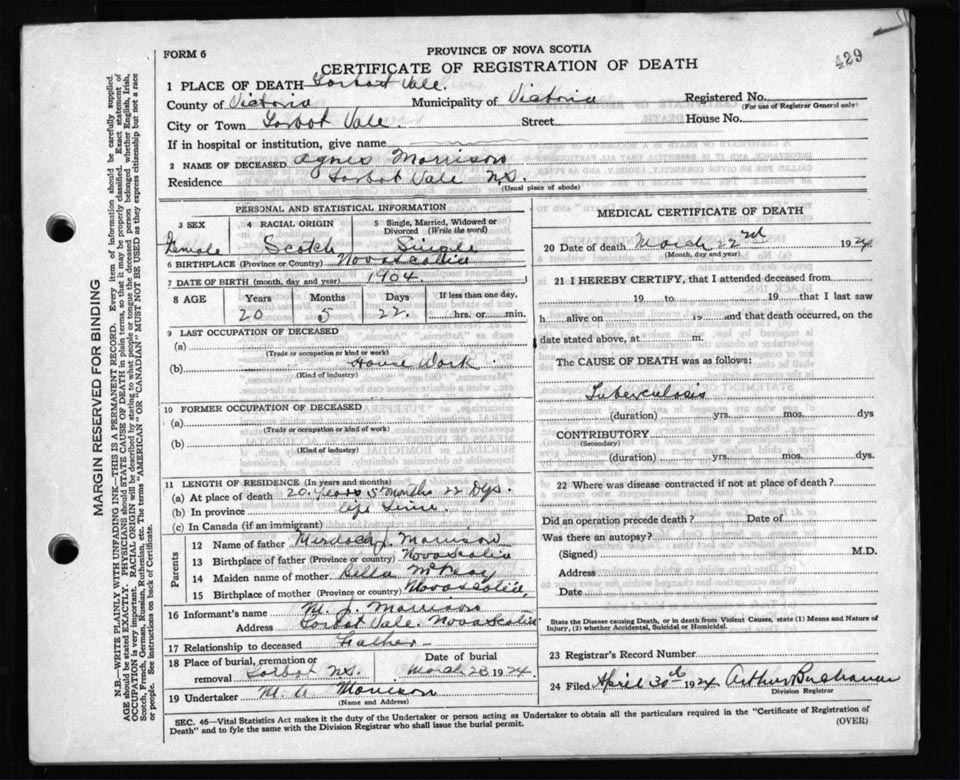 429
FORM 6
PROVINCE OF NOVA SCOTIA
CERTIFICATE OF REGISTRATION OF DEATH
1 PLACE OF DEATH Tarbot Vale.
County of Victoria Municipality of Victoria Registered No.
(For use of Registrar General only)
City or Town Tarbot Vale. Street House No.
If in hospital or institution, give name
2 NAME OF DECEASED Agnes Morrison
Residence Tarbot Vale N.S.
(Usual place of abode)
MARGIN RESERVED FOR BINDING
N.B.—WRITE PLAINLY WITH UNFADING INK—THIS IS A PERMANENT RECORD. Every item of information should be carefully supplied.
AGE should be stated EXACTLY. PHYSICIANS should STATE CAUSE OF DEATH in plain terms, so that it may be properly classified. Exact statement of
OCCUPATION is very important. RACIAL ORIGIN will be described by stating to what people or tongue the deceased person belonged whether English, Irish,
Scotch, French, German, Russian, Ruthenian, etc. The terms "AMERICAN" OR "CANADIAN" MUST NOT BE USED as they express citizenship but not a race
or people. See instructions on back of Certificate.
PERSONAL AND STATISTICAL INFORMATION
3 SEX 4 RACIAL ORIGIN 5 Single, Married, Widowed or
Divorced (Write the word)
Female Scotch Single
6 BIRTHPLACE (Province or Country) Nova Scotia
7 DATE OF BIRTH (month, day and year) 1904. 1
8 AGE Years Months Days If less than one day,
20 5 22. hrs. or min.
9 LAST OCCUPATION OF DECEASED
(a)
(Trade or occupation or kind or work)
(b) House Work
(Kind of industry)
10 FORMER OCCUPATION OF DECEASED
(a)
(Trade or occupation or kind of work)
(b)
(Kind of industry)
11 LENGTH OF RESIDENCE (In years and months)
(a) At place of death 20 Years 5 Months 22 Dys.
(b) In province life time
(c) In Canada (if an immigrant)
Parents
12 Name of father Murdoch J. Morrison
13 Birthplace of father (Province or country) Nova Scotia
14 Maiden name of mother Bella
15 Birthplace of mother (Province or country) Nova Scotia,
16 Informant's name M. J. Morrison
Address Tarbot Vale. Nova Scotia
17 Relationship to deceased Father
18 Place of burial, cremation or Date of burial
removal Tarbot N.S. March 23 1924
19 Undertaker M. Morrison
(Name and Address)
MEDICAL CERTIFICATE OF DEATH
20 Date of death March 22nd 1924
(Month, day and year)
21 I HEREBY CERTIFY, that I attended deceased from
19 to 19 that I last saw
h alive on 19 and that death occurred, on the
date stated above, at m.
The CAUSE OF DEATH was as follows:
Tuberculosis
(duration) yrs. mos. dys
CONTRIBUTORY
(Secondary)
(duration) yrs. mos. dys.
22 Where was disease contracted if not at place of death?
Did an operation precede death? Date of
Was there an autopsy?
(Signed) M.D.
Address
Date
State the Disease causing Death, or in death from Violent Causes, state (1) Means and Nature of
Injury, (2) whether Accidental, Suicidal or Homicidal.
23 Registrar's Record Number
24 Filed April 30th 1924 Arthur Buchanan
Division Registrar
SEC. 46—Vital Statistics Act makes it the duty of the Undertaker or person acting as Undertaker to obtain all the particulars required in the "Certificate of Registration of
Death" and to fyle the same with the Division Registrar who shall issue the burial permit.
(OVER)